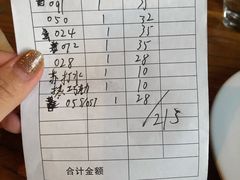 091 1 35
050 1 32
024 1 35
072 1 35
028 1 28
苏打水 1 10
1 10
058051 1 28
215
合计金额